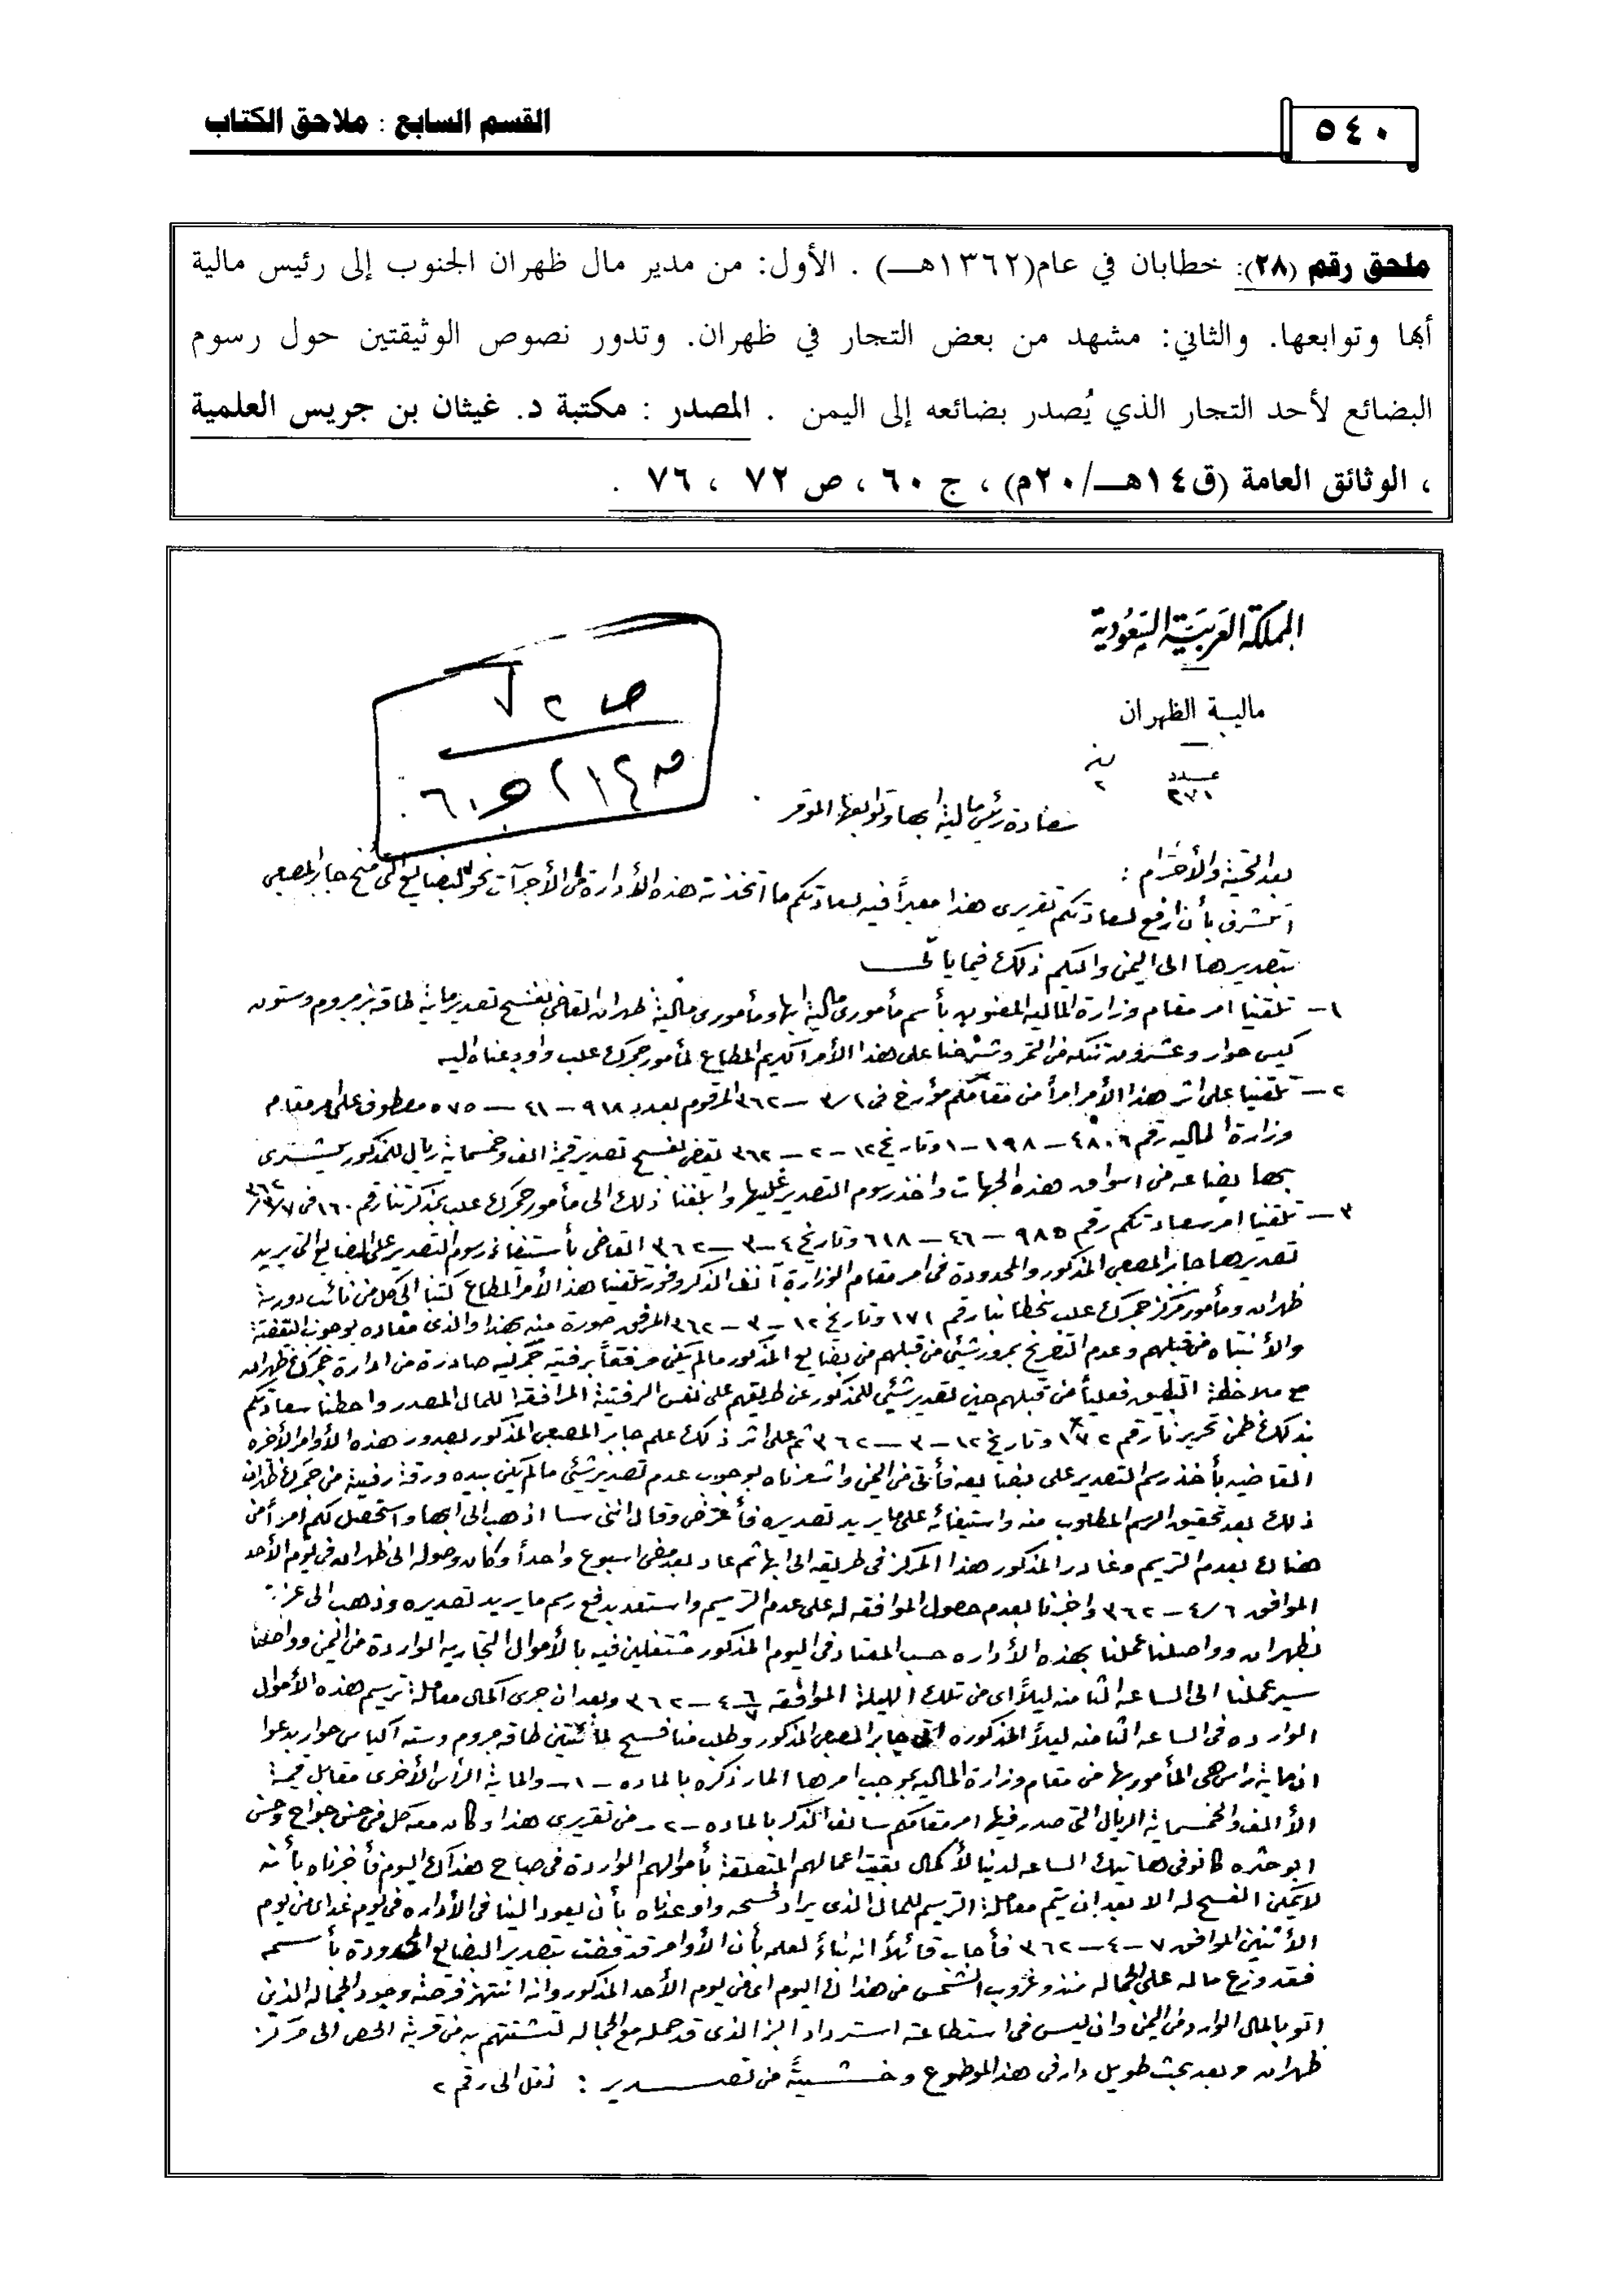 القسم السابع : ملاحق الكتاب
٥٤٠
ملحق رقم (٢٨): خطابان في عام(١٣٦٢هـ) . الأول: من مدير مال ظهران الجنوب إلى رئيس مالية
أبها وتوابعها. والثاني: مشهد من بعض التجار في ظهران. وتدور نصوص الوثيقتين حول رسوم
البضائع لأحد التجار الذي يُصدر بضائعه إلى اليمن . المصدر : مكتبة د. غيثان بن جريس العلمية
، الوثائق العامة (ق١٤هـ/٢٠م) ، ج ٦٠ ، ص ٧٢ ، ٧٦ .
المملكة العربية السعودية
مالية الظهران
عدد
٢٧١
سعادة رئيس مالية ابها وتوابعها الموقر
بعد التحية والأحترام :
اتشرف بأن ارفع لسعادتكم تقريري هذا معبراً فيه لسعادتكم ما اتخذته هذه الأدارة من الأجرآت نحو البضايع التى منح جابر المصعبي
بتصديرها الى اليمن واليكم ذلك فيما يأتى
١ــ تلقينا امر مقام وزارة المالية المعنون بأسم مأمورى مالية ابها ومأمورى مالية ظهران القاضي بفسح تصدير ماية طاقة بز مبروم وستون
كيس حوار وعشرون تنكه من التمر وشرحنا على هذا الأمر الكريم المطاع لمأمور جمرك علب واودعناه اليه
٢ــ تلقينا على اثر هذا الأمر امراً من مقامكم مؤرخ فى ٣/١ــ٣٦٢ المرقوم بعدد ٩١٨ــ٤١ــ٥٧٥ معطوف على امر مقام
وزارة المالية رقم ٤٨٠٦ــ١٩٨ــ١ وتاريخ ١٢ــ٢ــ٣٦٢ يقضى بفسح تصدير قيمة الف وخمسماية ريال للمذكور يشترى
بها بضاعه من اسواق هذه الجهات واخذ رسوم التصدير عليها وابلغنا ذلك الى مأمور جمرك علب بمذكرتنا رقم ١٦٠ فى
٣ــ تلقينا امر سعادتكم رقم ٩٨٥ــ٤٦ــ٦١٨ وتاريخ ٤ــ٣ــ٣٦٢ القاضى بأستيفاء رسوم التصدير على البضايع التى يريد
تصديرها جابر المصعبي المذكور والمحدودة فى امر مقام الوزارة آنف الذكر وفور تلقينا هذا الأمر المطاع كتبنا الى كل من نائب دورية
ظهران ومأمور مركز جمرك علب بخطابنا رقم ١٧١ وتاريخ ١٢ــ٣ــ٣٦٢ المرفق صورة منه بهذا والذى مفاده بوجوب اليقظة
والأنتباه من قبلهم وعدم التصريح بمرور شيئ من قبلهم من بضايع المذكور مالم يكن مرفقاً برفتيه جمركيه صادرة من ادارة جمرك ظهران
مع ملاحظة التطبيق فعلياً من قبلهم حين تصدير شيئ للمذكور عن طريقهم على نفس الرفتية المرافقة للمال المصدر واحطنا سعادتكم
بذلك ضمن تحريرنا رقم ١٧٢ وتاريخ ١٢ــ٣ــ٣٦٢ ثم على اثر ذلك علم جابر المصعبي المذكور بصدور هذه الأوامر الأخره
القاضيه بأخذ رسم التصدير على بضايعه فأتى من اليمن واشعرناه بوجوب عدم تصدير شيئ مالم يكن بيده ورقة رفتية من جمرك ظهران
ذلك بعد تحقيق الرسم المطلوب منه واستيفائه على ما يريد تصديره فأعترض وقال اننى سا اذهب الى ابها واستحصل لكم امراً من
هناك بعدم الترسيم وغادر المذكور هذا المركز فى طريقه الى ابها ثم عاد بعد مضى اسبوع واحداً وكان وصوله الى ظهران فى يوم الأحد
الموافق ٤/٦ــ٣٦٢ واخبرنا بعدم حصول الموافقه له على عدم الترسيم واستعد بدفع رسم ما يريد تصديره وذهب الى
بظهران وواصلنا عملنا بهذه الأداره حسب المعتاد فى اليوم المذكور مشتغلين فيه بالأموال التجاريه الواردة من اليمن وواصلنا
سير عملنا الى الساعه الثامنه ليلاً اى من تلك الليلة الموافقه ٤ــ٣٦٢ وبعد ان جرى اكمال معاملة ترسيم هذه الأموال
الوارده فى الساعه الثامنه ليلاً المذكوره اتى جابر المصعبي المذكور وطلب منا فسح لمأئتين طاقه مبروم وسته آكياس حوار يدعوا
ان ماية راس هى المأمور بها من مقام وزارة الماليه بموجب امرها المار ذكره بالماده ــ١ــ والماية الرأس الأخرى مقابل قيمة
الألف والخمسماية الريال التى صدر فيها امر مقامكم سالف الذكر بالماده ــ٢ــ من تقريرى هذا وكان معه كل من
كانو فى هاتيك الساعه لدنيا لأكمال بقية اعمالهم المتعلقة بأموالهم الواردة فى صباح هذاك اليوم فأخبرناه بأنه
لايمكن الفسح له الا بعد ان يتم معاملة الترسيم للمال الذى يراد فسحه واوعدناه بأن يعود الينا فى الأداره فى يوم غد اى من يوم
الأثنين الموافق ٧ــ٤ــ٣٦٢ فأجاب قائلاً انه بناءً لعلمه بأن الأوامر قد قضت بتصدير البضايع المحدودة بأسمه
فقد وزع ماله على الجماله منذ غروب الشمس من هذاك اليوم اى من يوم الأحد المذكور وانه انتهز فرصة وجود الجماله الذين
اتو بالمال الوارد من اليمن وان ليس فى استطاعته استرداد البز الذى قد حمله مع الجماله لتشتتهم به من قرية الى مركز
ظهران وبعد بحث طويل دار فى هذا الموضوع وخشيةً من تصدير : نقل الى رقم ٢